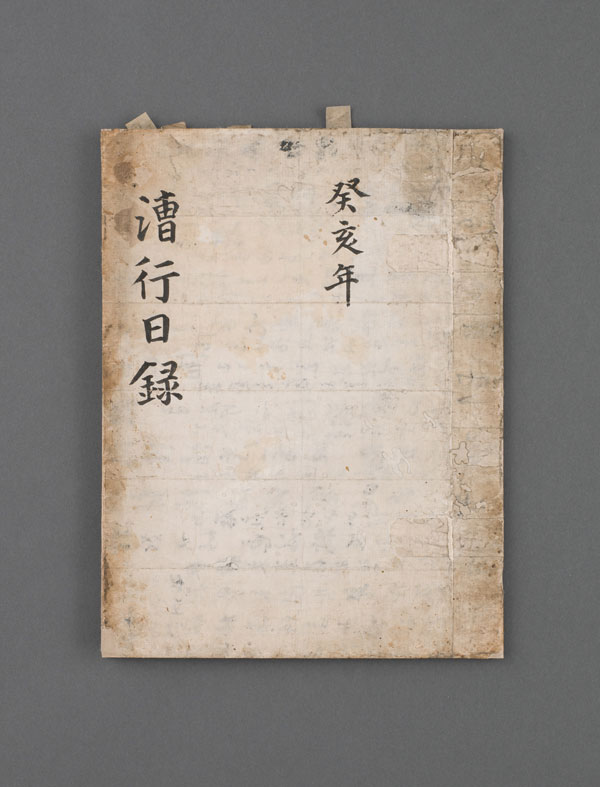 癸亥年
漕行日録